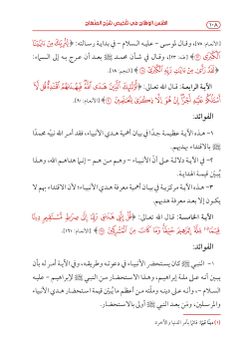 ١٠٨
القبس الوهاج في تلخيص شرح المنهاج
[الأنعام: ٧٥]، وقال لموسى - عليه السلام - في بداية رسالته: ﴿لِنُرِيَكَ مِنْ ءَايَٰتِنَا
ٱلْكُبْرَى﴾ [طه: ٢٣]، وقال في شأن محمد ﷺ بعد أن عرج به إلى السماء:
﴿لَقَدْ رَأَىٰ مِنْ ءَايَٰتِ رَبِّهِ ٱلْكُبْرَىٰٓ﴾ [النجم: ١٨].
الآية الرابعة: قال الله تعالى: ﴿أُو۟لَٰٓئِكَ ٱلَّذِينَ هَدَى ٱللَّهُ فَبِهُدَىٰهُمُ ٱقْتَدِهْ قُل لَّآ
أَسْـَٔلُكُمْ عَلَيْهِ أَجْرًا إِنْ هُوَ إِلَّا ذِكْرَىٰ لِلْعَٰلَمِينَ﴾ [الأنعام: ٩٠].
الفوائد:
١- هذه الآية عظيمة جدًا في بيان أهمية هدي الأنبياء، فقد أمر الله نبيَّه محمدًا
ﷺ بالاقتداء بهديهم.
٢- في الآية دلالة على أنَّ الأنبياء - وهم من هم - إنما هداهم الله، وهذا
يُبين قيمة الهداية.
٣- هذه الآية مركزية في بيان أهمية معرفة هدي الأنبياء؛ لأن الاقتداء بهم لا
يكون إلا بعد معرفة هديهم.
الآية الخامسة: قال الله تعالى: ﴿قُلْ إِنَّنِى هَدَىٰنِى رَبِّىٓ إِلَىٰ صِرَٰطٍ مُّسْتَقِيمٍ دِينًا
قِيَمًا مِّلَّةَ إِبْرَٰهِيمَ حَنِيفًا وَمَا كَانَ مِنَ ٱلْمُشْرِكِينَ﴾ [الأنعام: ١٦١].
الفوائد:
١- النبي ﷺ كان يستحضر الأنبياء في دعوته وطريقه، وفي الآية أمر له بأن
يبين أنه على ملة إبراهيم، وهذا الاستحضار من النبي ﷺ لإبراهيم - عليه
السلام - وأنه على دينه وملَّته من أعظم ما يُبين قيمة استحضار هدي الأنبياء
والمرسلين، ومَن بعد النبي ﷺ أولى بالاستحضار.